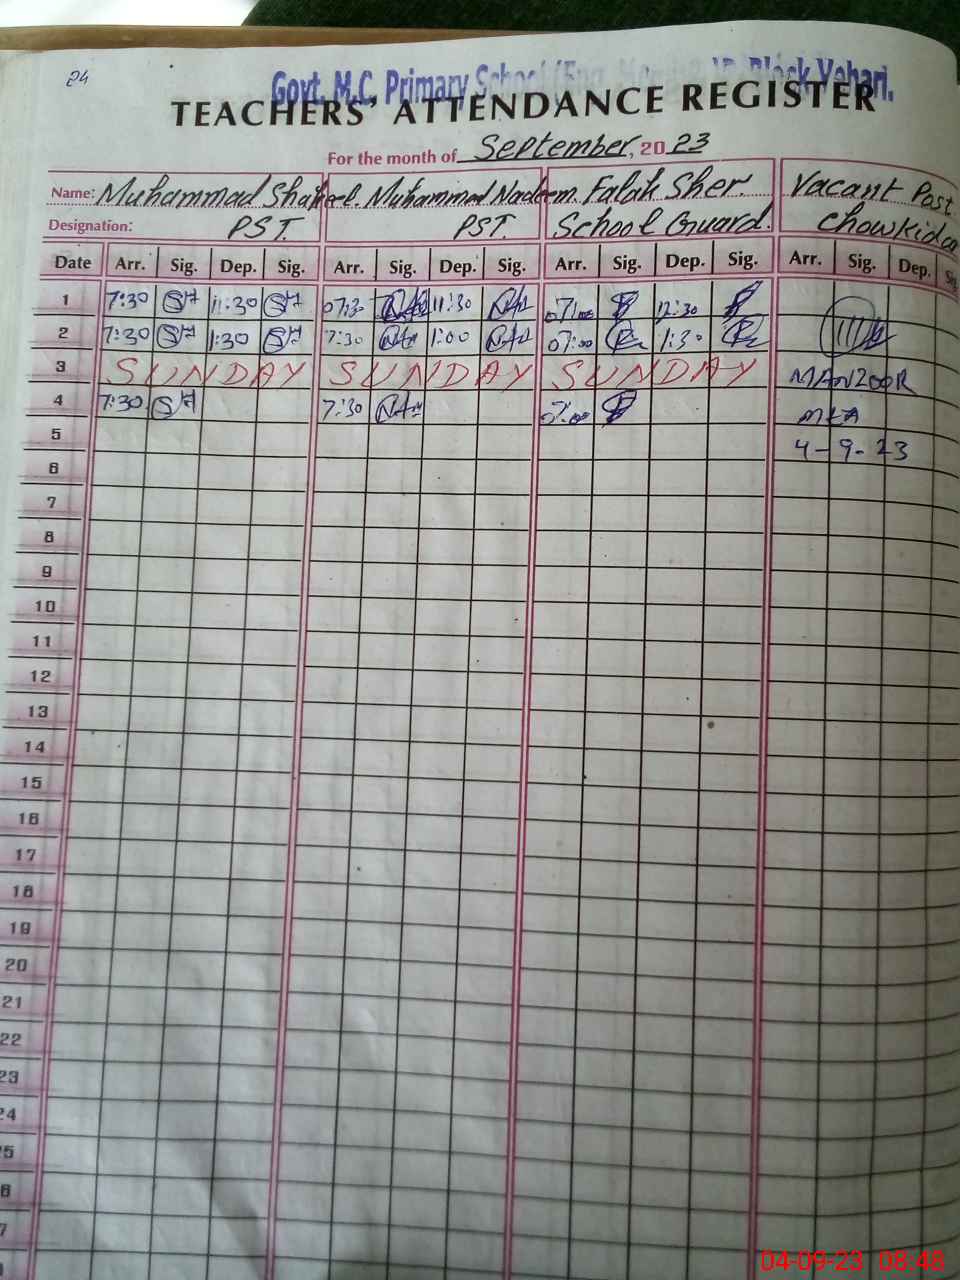 24
Govt. M.C. Primary School Block Vehari.
TEACHERS' ATTENDANCE REGISTER
For the month of September, 2023
Name: Muhammad Shakeel. Muhammad Nadeem. Falak Sher. Vacant Post
Designation: PST. PST. School Guard. Chowkida
Date Arr. Sig. Dep. Sig. Arr. Sig. Dep. Sig. Arr. Sig. Dep. Sig. Arr. Sig. Dep.
1 7:30 11:30 07:30 11:30 07:00 12:30
2 7:30 1:30 7:30 1:00 07:00 1:30
3 SUNDAY SUNDAY SUNDAY MANZOOR
4 7:30 7:30 07:00 MEA
5 4-9-23
6
7
8
9
10
11
12
13
14
15
16
17
18
19
20
21
22
23
24
25
6
7
04-09-23 08:48